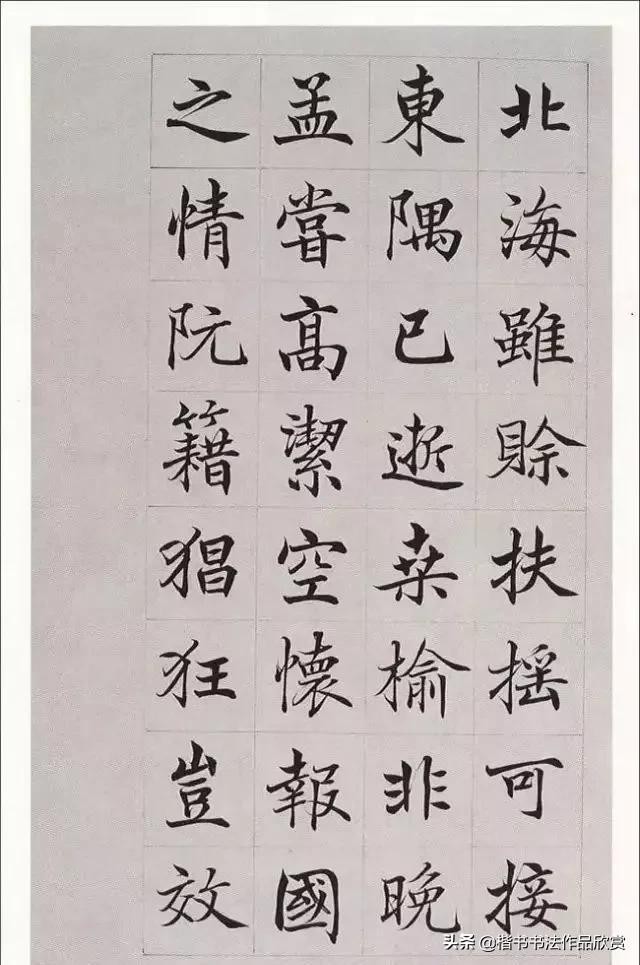 北海雖賒扶搖可接
東隅已逝桑榆非晚
孟嘗高潔空懷報國
之情阮籍猖狂豈效
头条@楷书书法作品欣赏